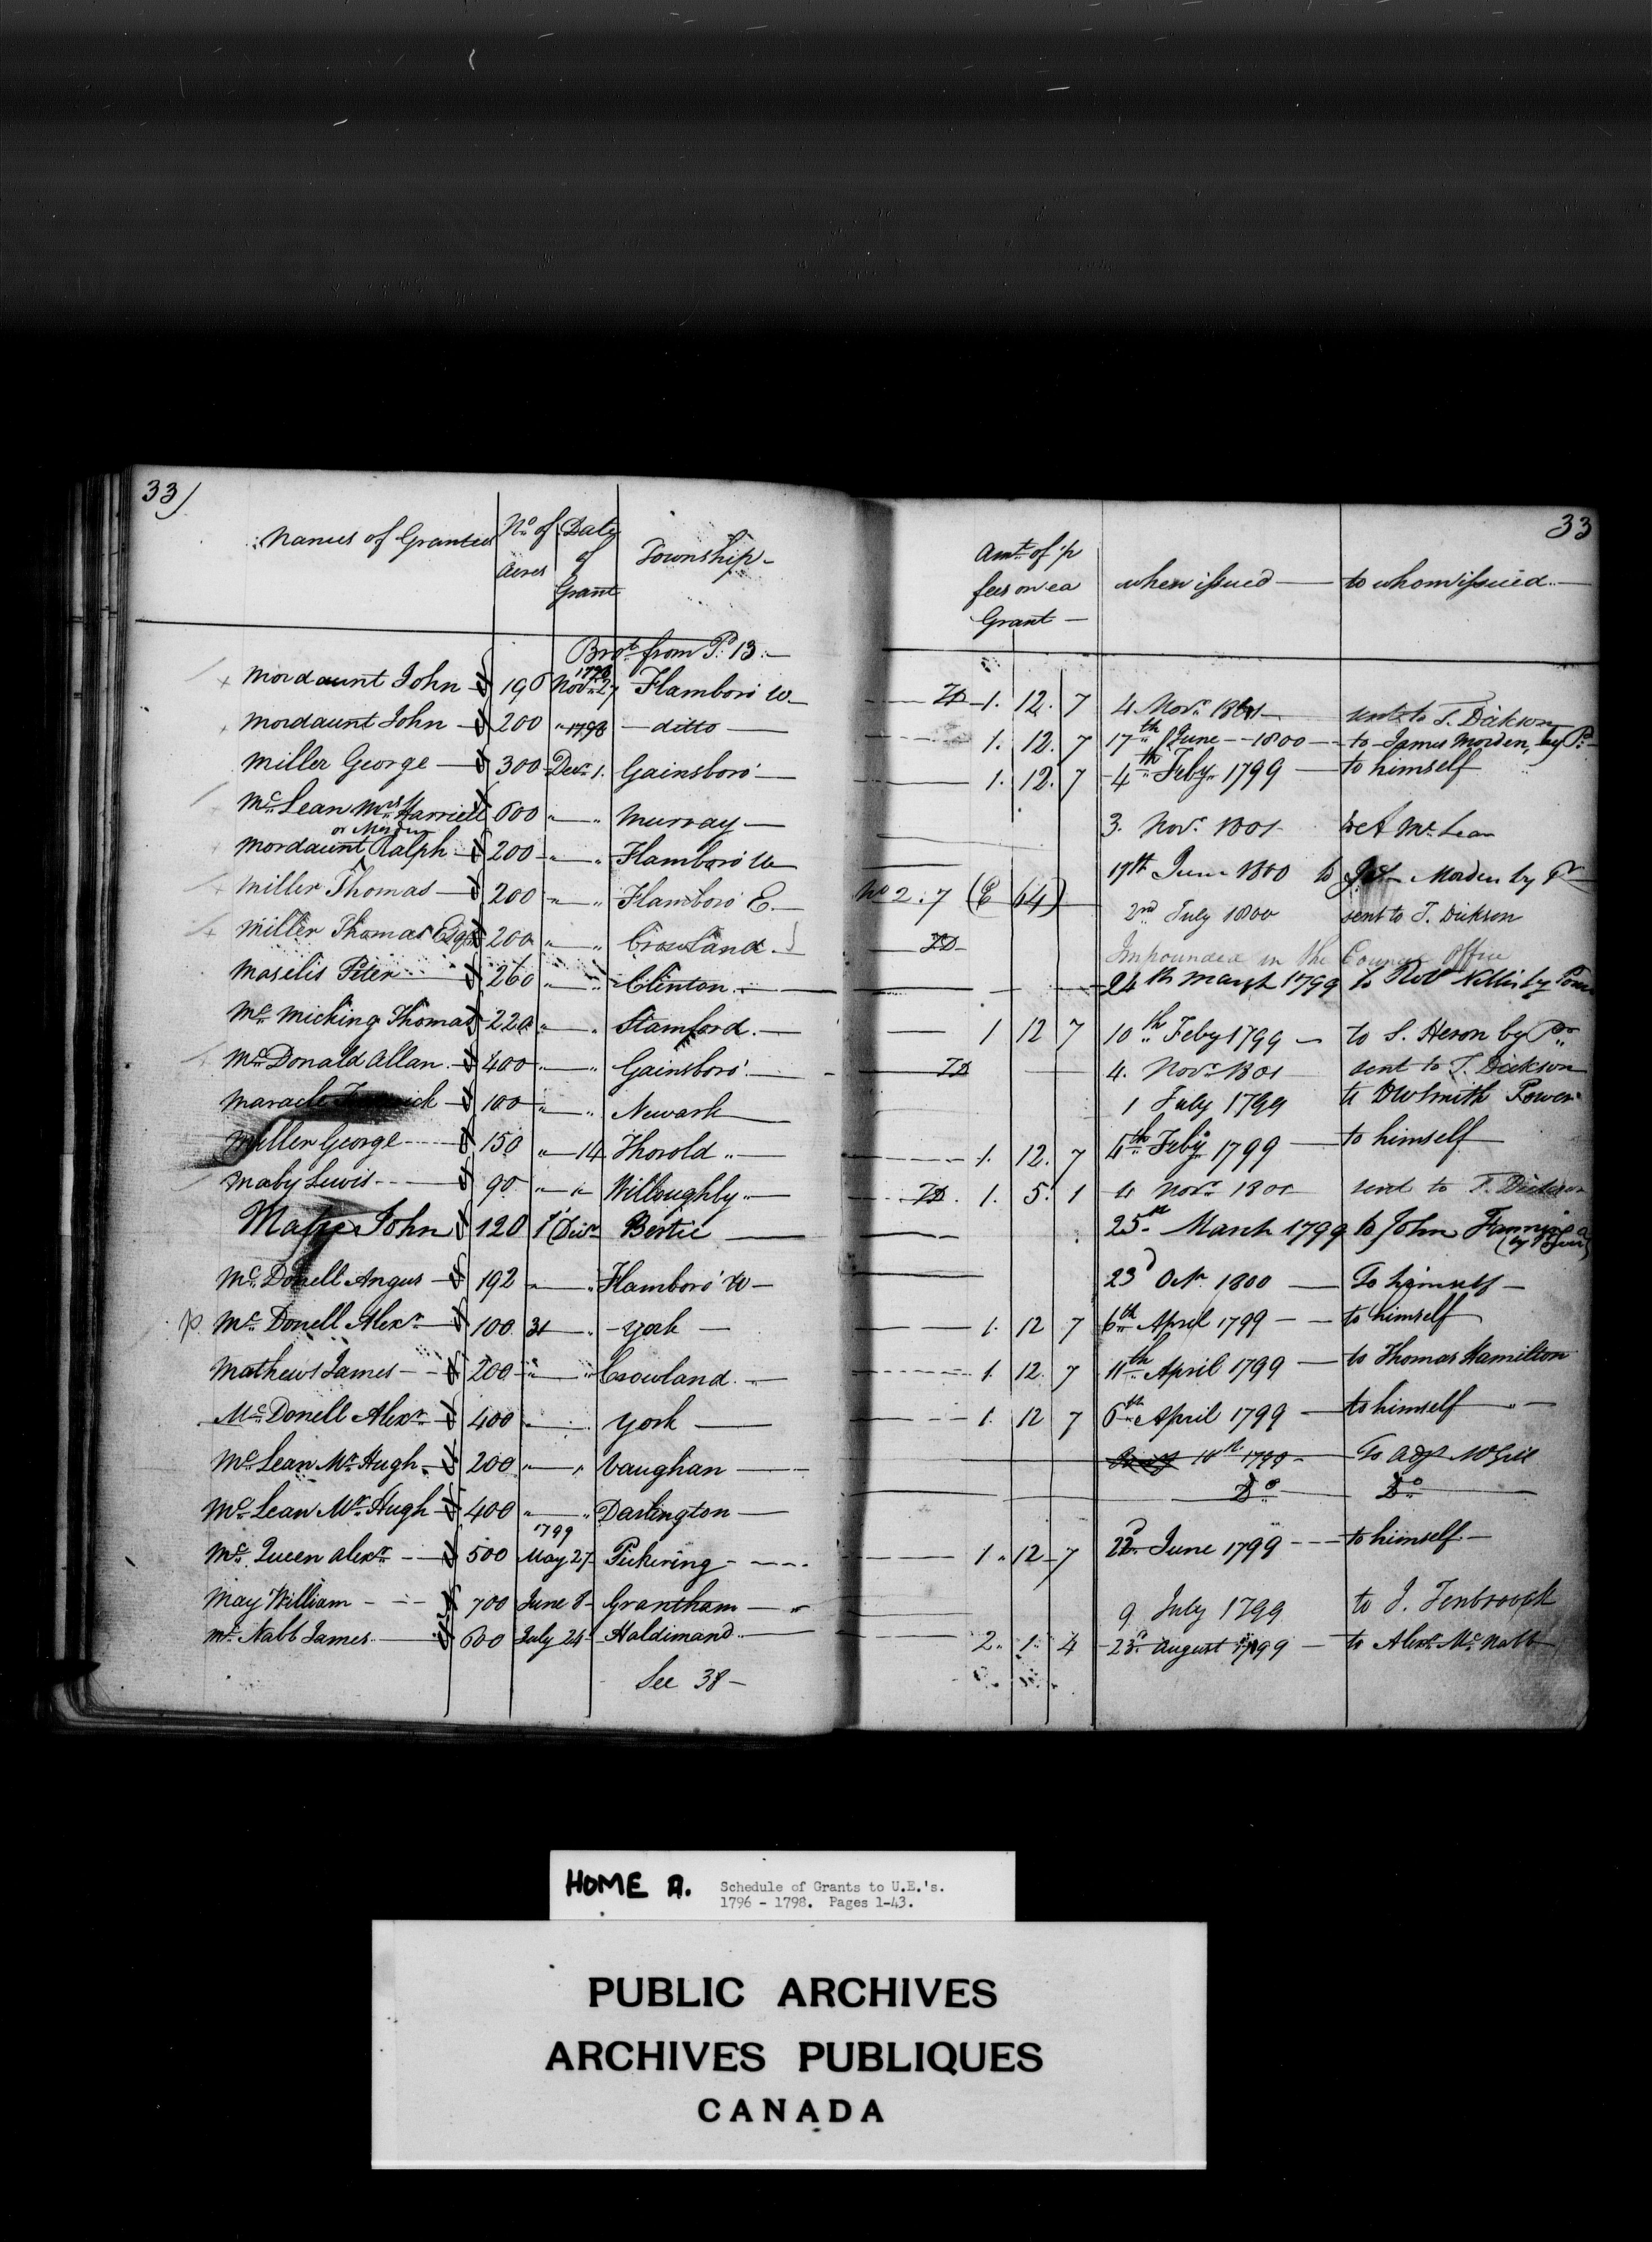 33)
Names of Grantees No. of Acres Date of Grant Township
Brot. from P. 13.
Mordaunt John 190 1798 Novr. 27 Flamboro W
Mordaunt John 200 " 1798 ditto
Miller George 300 Decr. 1. Gainsboro'
McLean Mrs. Harriett 600 " " Murray
or Morden
Mordaunt Ralph 200 " " Flamboro' W
Miller Thomas 200 " " Flamboro E.
Miller Thomas Esqr. 200 " " Crowland
Maselis Peter 260 " " Clinton
Mc. Micking Thomas 220 " " Stamford.
Mc. Donald Allan 400 " " Gainsboro'
Maracle 100 " " Newark
Miller George 150 " 14 Thorold
Maby Lewis 90 " " Willoughby
John 120 Bertie
Mc. Donell Angus 192 " " Flamboro' W
p Mc. Donell Alexr. 100 31 " York
Mathews James 200 " " Crowland
Mc. Donell Alexr. 400 " " York
Mc. Lean Mr. Hugh 200 " " Vaughan
Mc. Lean Mr. Hugh 400 " " Darlington
1799
Mc. Queen Alexr. 500 May 27 Pickering
May William 700 June 8 Grantham
Mc. Nabb James 600 July 24 Haldimand
See 38
33
Amt. of p fees on ea Grant when issued to whom issued
TD 1. 12. 7 4 Novr. 1801 sent to T. Dickson
1. 12. 7 17th June 1800 to James Morden, by Pr.
1. 12. 7 4th Feby. 1799 to himself
3. Novr. 1801 to A McLean
17th June 1800 to Morden by Pr
No 2. 7 (E 64) 2nd July 1800 sent to T. Dickson
TD Impounded in the Council Office
24th March 1799 to Robt Nelles by Power
1 12 7 10th Feby 1799 to S. Heron by Pr.
TD 4. Novr. 1801 sent to T. Dickson
1 July 1799 to DW Smith Power
1. 12. 7 4th Feby 1799 to himself
TD. 1. 5. 1 4 Novr. 1801 sent to T. Dickson
25th March 1799 to John Fanning
23d Octr. 1800 To himself
1. 12 7 6th April 1799 to himself
1. 12. 7 11th April 1799 to Thomas Hamilton
1. 12 7 6th April 1799 to himself
14th 1799 To McGill
Do Do
1. 12 7 22d. June 1799 to himself
9 July 1799 to J. Tenbroock
2. 1. 4 23d. August 1799 to Alexr. McNabb
HOME A. Schedule of Grants to U.E.'s.
1796 - 1798. Pages 1-43.
PUBLIC ARCHIVES
ARCHIVES PUBLIQUES
CANADA